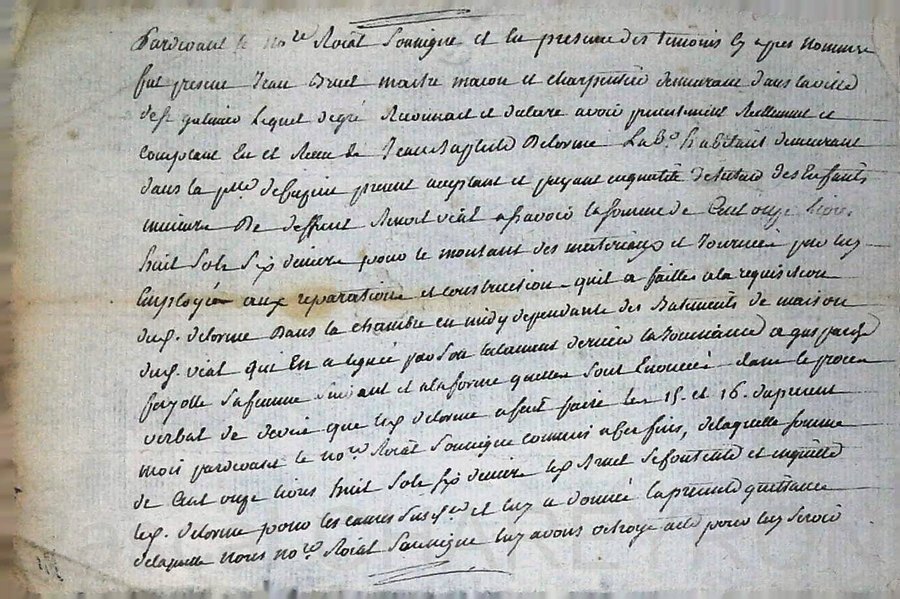 Pardevant le no.re Roiāl Soussigne et en presence des temoins cy apres nommes
fut present Jean Bruel maitre macon et charpentier demeurant dans la ville
de st galmier Lequel de gré Reconnait et declare avoir presentement Reellement et
comptant Eu et Receu de Jean Baptiste Delorme Lab.r habitant demeurant
dans la p.sse de present acceptant et payant en qualité de tuteur des Enfants
mineurs De deffunt Benoit vial assavoir la somme de Cent onze livres
huit Sols Six deniers pour le montant des materiaux et Journées par luy
Employés aux reparations et construction quil a faittes a la requisition
dud. delorme Dans la chambre en midy dependante des Batiments de maison
dud. vial qui En a legué par Son testament dernier la Jouissance a
fayolle Sa femme Suivant et a la forme quelles Sont Enoncées dans le proces
verbal de devis que led. delorme a fait faire les 15. et 16. du present
mois pardevant le no.re Roiāl Soussigne commis a ces fins, de laquelle somme
de Cent onze livres huit Sols Six deniers led. Bruel Se contente et en quitte
led. delorme pour les causes Susd.es et luy a donné la presente quittance
de laquelle Nous no.re Roiāl Soussigne luy avons octroyé acte pour luy Servir